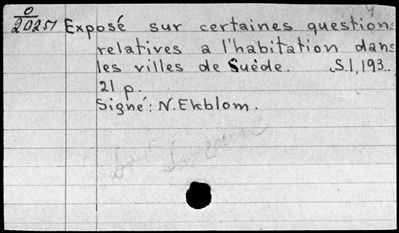 O
20251 Exposé sur certaines question
relatives a l'habitation dans
les villes de Suède. S.l, 193..
21 p.
Signé: N. Ekblom.